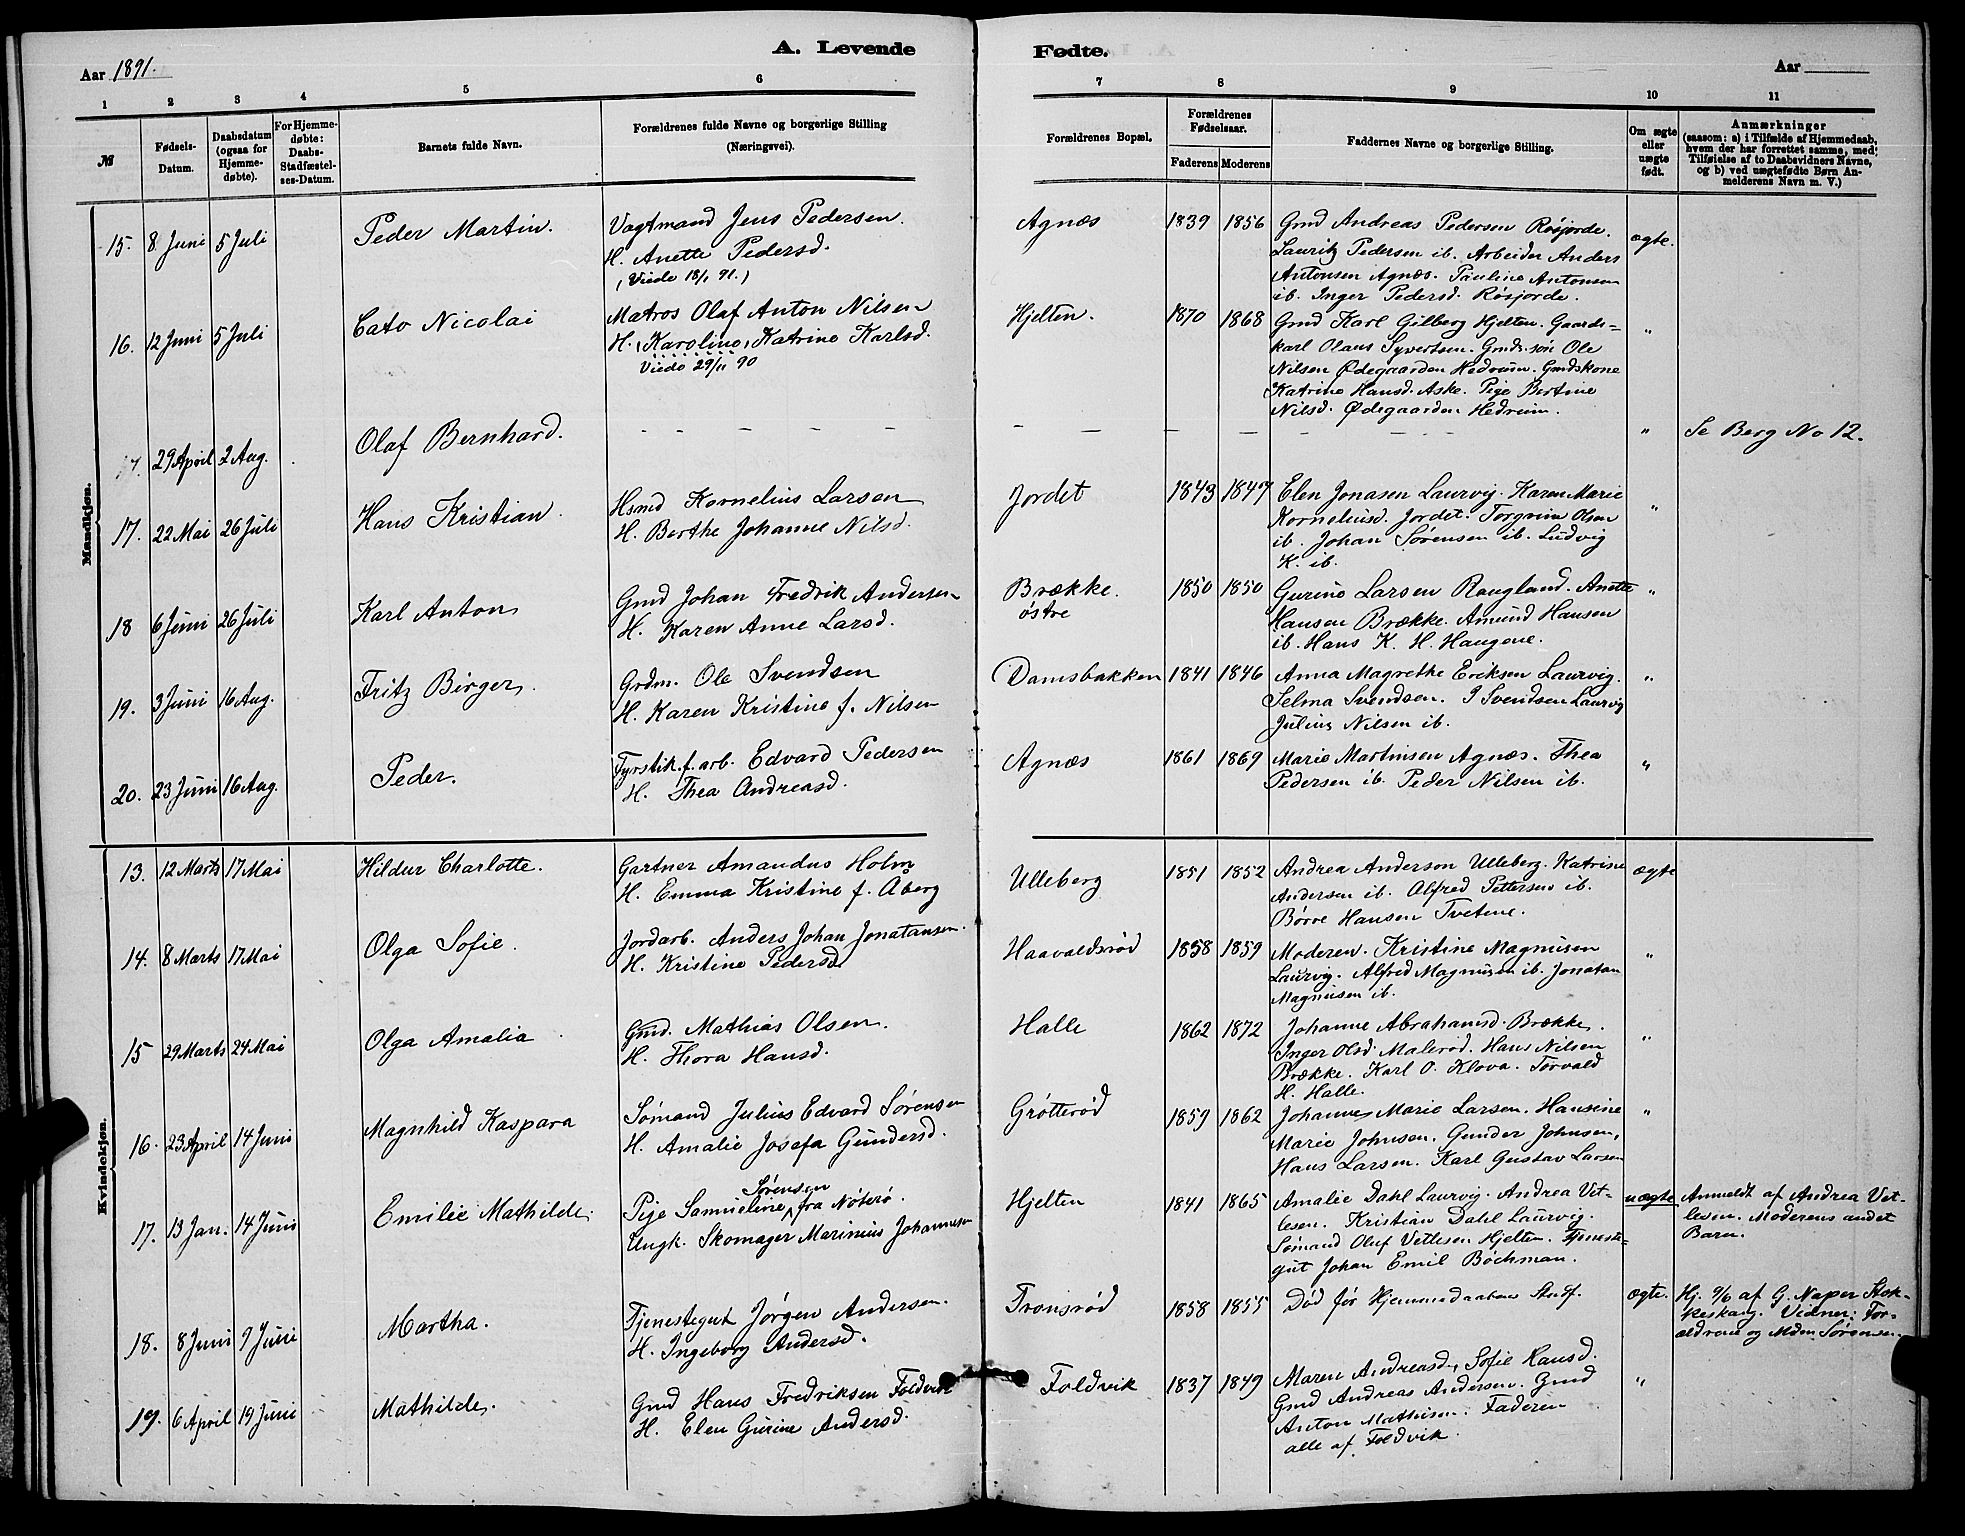 A. Levende Fødte.
Aar 1891.
Aar
1 2 3 4 5 6 7 8 9 10 11
№
Fødsels-Datum.
Daabsdatum (ogsaa for Hjemme-døbte).
For Hjemme-døbte: Daabs-Stadfæstel-ses-Datum.
Barnets fulde Navn.
Forældrenes fulde Navne og borgerlige Stilling (Næringsvei).
Forældrenes Bopæl.
Forældrenes Fødselsaar.
Faderens Moderens
Faddernes Navne og borgerlige Stilling.
Om ægte eller uægte født.
Anmærkninger (saasom: a) i Tilfælde af Hjemmedaab, hvem der har forrettet samme, med Tilføielse af to Daabsvidners Navne, og b) ved uægtefødte Børn An-melderens Navn m. V.)
Mandkjøn.
15. 8 Juni 5 Juli Peder Martin.
Vagtmand Jens Pedersen.
H. Anette Pedersd.
(Viede 18/1 91.)
Agnæs 1839 1856
Gmd Andreas Pedersen Røsjorde.
Lauritz Pedersen ib. Arbeider Anders
Antonsen Agnæs. Pauline Antonsen
ib. Inger Pedersd. Røsjorde.
ægte.
16. 12 Juni 5 Juli Cato Nicolai
Matros Olaf Anton Nilsen
H. (Karoline) Katrine Karlsd.
Viede 29/11 90
Hjelten. 1870 1868
Gmd Karl Gilberg Hjelten. Gaards-
karl Olaus Syvertsen. Gmds.søn Ole
Nilsen Ødegaarden Hedrum. Gmdskone
Katrine Hansd. Aske. Pige Bertine
Nilsd. Ødegaarden Hedrum.
"
29 April 2 Aug. Olaf Bernhard.
- - - - - -
" Se Berg No 12.
17. 22 Mai 26 Juli Hans Kristian.
Hsmd Kornelius Larsen
H. Berthe Johanne Nilsd.
Jordet 1843 1847
Elen Jonasen Laurvig. Karen Marie
Korneliusd. Jordet. Torgrim Olsen
ib. Johan Sørensen ib. Ludvig
K. ib.
"
18 6 Juni 26 Juli Karl Anton
Gmd Johan Fredrik Andersen
H. Karen Anne Larsd.
Brække.
østre
1850 1850
Gurine Larsen Raugland. Anette
Hansen Brække. Amund Hansen
ib. Hans K. H. Haugene.
"
19. 3 Juni 16 Aug. Fritz Birger.
Grdm. Ole Svendsen
H. Karen Kristine f. Nilsen
Damsbakken 1841 1846
Anna Magrethe Eriksen Laurvig.
Selma Svendsen. I Svendsen Laurvig
Julius Nilsen ib.
"
20. 23 Juni 16 Aug. Peder.
Fyrstik.f.arb. Edvard Pedersen
H. Thea Andreasd.
Agnæs 1861 1869
Marie Martinsen Agnæs. Thea
Pedersen ib. Peder Nilsen ib.
"
Kvindekjøn.
13. 12 Marts 17 Mai Hildur Charlotte.
Gartner Amandus Holm
H. Emma Kristine f. Åberg
Ulleberg 1851 1852
Andrea Anderson Ulleberg. Katrine
Andersen ib. Alfred Pettersen ib.
Børre Hansen Tvetene.
ægte
14. 8 Marts 17 Mai Olga Sofie.
Jordarb. Anders Johan Jonatansen.
H. Kristine Pedersd
Haavaldsrød 1858 1859
Moderen. Kristine Magnusen
Laurvig. Alfred Magnusen ib. Jonatan
Magnusen ib.
"
15 29 Marts 24 Mai Olga Amalia
Gmd. Mathias Olsen.
H. Thora Hansd.
Halle 1862 1872
Johanne Abrahamsd. Brække.
Inger Olsd. Malerød. Hans Nilsen
Brække. Karl O. Klova. Torvald
H. Halle.
"
16. 23 April 14 Juni Magnhild Kaspara
Sømand Julius Edvard Sørensen
H. Amalie Josefa Gundersd.
Grøtterød 1859 1862
Johanne Marie Larsen. Hansine
Marie Johnsen. Gunder Johnsen,
Hans Larsen. Karl Gustav Larsen
"
17. 13 Jan. 14 Juni Emilie Mathilde.
Sørensen
Pige Samueline ^ fra Nøterø.
Ungk. Skomager Marinius Johannesen
Hjelten 1841 1865
Amalie Dahl Laurvig. Andrea Vet-
lesen. Kristian Dahl Laurvig.
Sømand Oluf Vetlesen Hjelten. Tjeneste-
gut Johan Emil Bøchman.
uægte
Anmeldt af Andrea Vet-
lesen. Moderens andet
Barn.
18. 8 Juni 9 Juni Martha.
Tjenestegut Jørgen Andersen.
H. Ingeborg Andersd.
Tronsrød 1858 1855
Død før Hjemmedaabens Stadf.
ægte.
Hj. 9/6 af G. Naper Stok-
keskarg. Vidner: For-
ældrene og Mdm Sørensen.
19. 6 April 19 Juni Mathilde.
Gmd Hans Fredriksen Foldvik
H. Elen Gurine Andersd.
Foldvik 1837 1849
Maren Andreasd, Sofie Hansd.
Gmd Andreas Andersen. Gmd
Anton Mathisen. Faderen
alle af Foldvik.
"